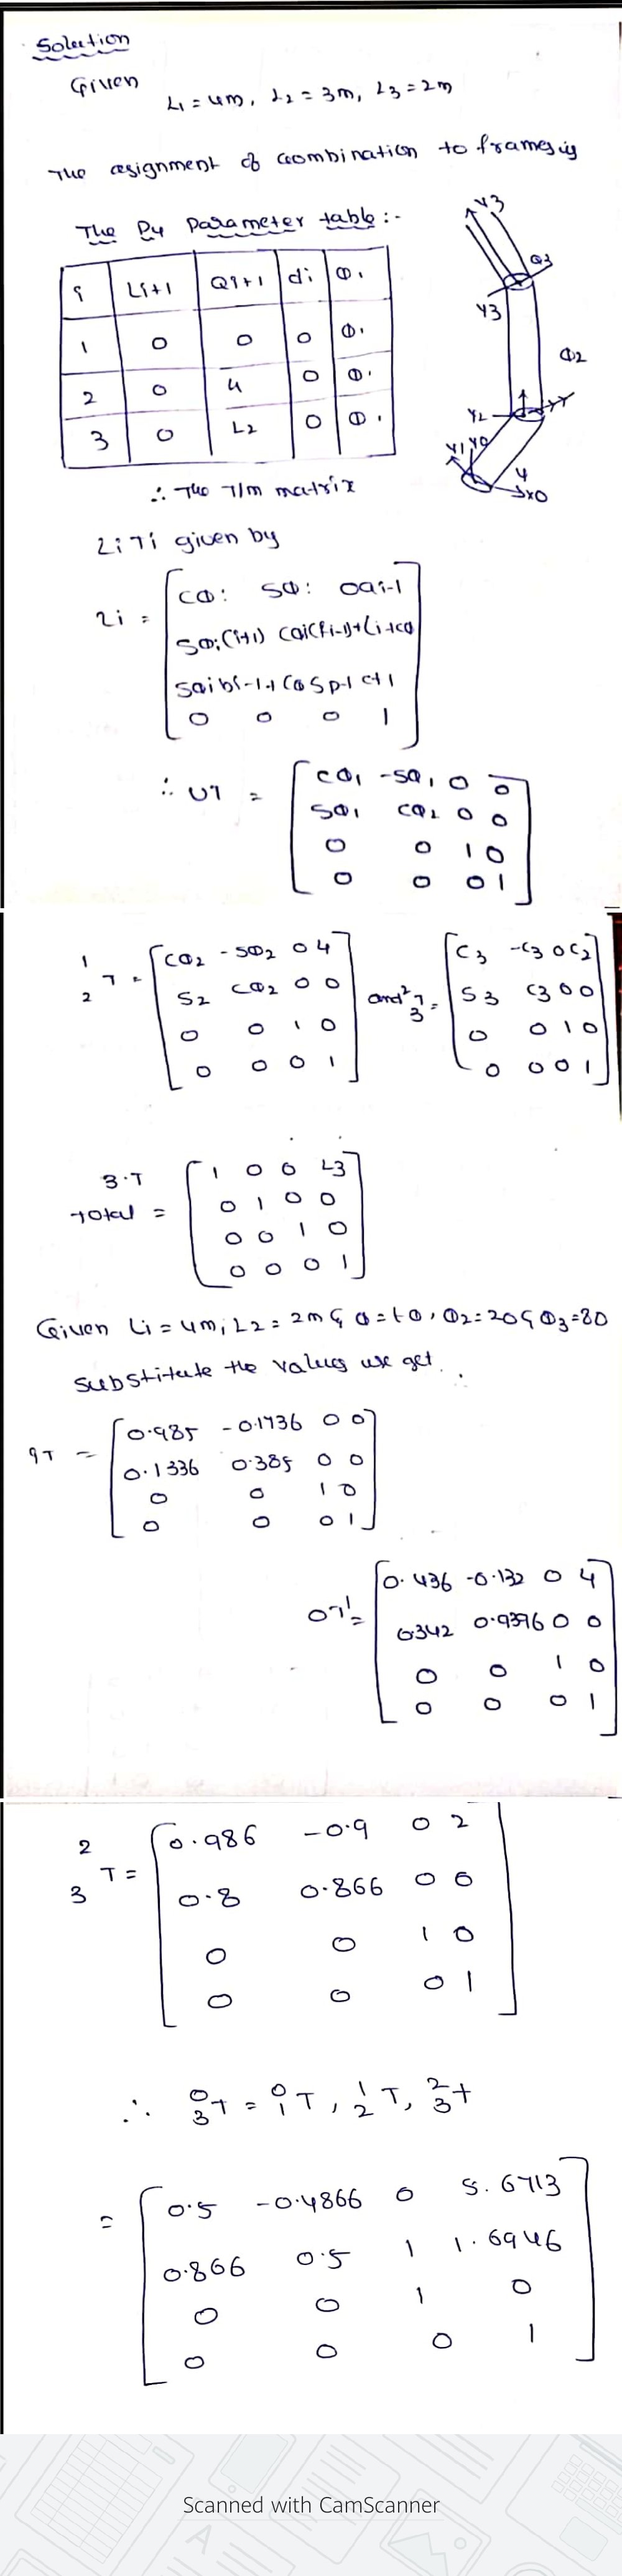 Solution
Given
L1 = 4m, L2 = 3m, L3 = 2m
The assignment of combination to frames is
The Dy Parameter table :-
i Li+1 Qi+1 di Φ.
1 0 0 0 Φ.
2 0 4 0 Φ.
3 0 L2 0 Φ.
Y3
Q3
Y3
Φ2
Y2
Y1 Y0
4
X0
∴ The T/m matrix
2iTi given by
2i =
CΦ: SΦ: 0ai-1
0 0 0 1
∴ UT =
CΦ1 -SΦ1 0 0
SΦ1 CΦ2 0 0
0 0 1 0
0 0 0 1
1 2 T =
CΦ2 -SΦ2 0 4
S2 CΦ2 0 0
0 0 1 0
0 0 0 1
and 2 3 T =
C3 -C3 0 C2
S3 C3 0 0
0 0 1 0
0 0 0 1
3.T
Total =
1 0 0 L3
0 1 0 0
0 0 1 0
0 0 0 1
Given Li = 4m; L2 = 2m & Φ = 10, Φ2 = 20 & Φ3 = 80
substitute the values we get
9T =
0.985 -0.1736 0 0
0.1336 0.385 0 0
0 0 1 0
0 0 0 1
0T1 =
0.436 -0.132 0 4
0.342 0.9396 0 0
0 0 1 0
0 0 0 1
2 3 T =
0.986 -0.9 0 2
0.8 0.866 0 0
0 0 1 0
0 0 0 1
∴ 0 3 T = 0 1 T, 1 2 T, 2 3 T
=
0.5 -0.4866 0 5.6713
0.866 0.5 1 1.6946
0 0 1 0
0 0 0 1
Scanned with CamScanner